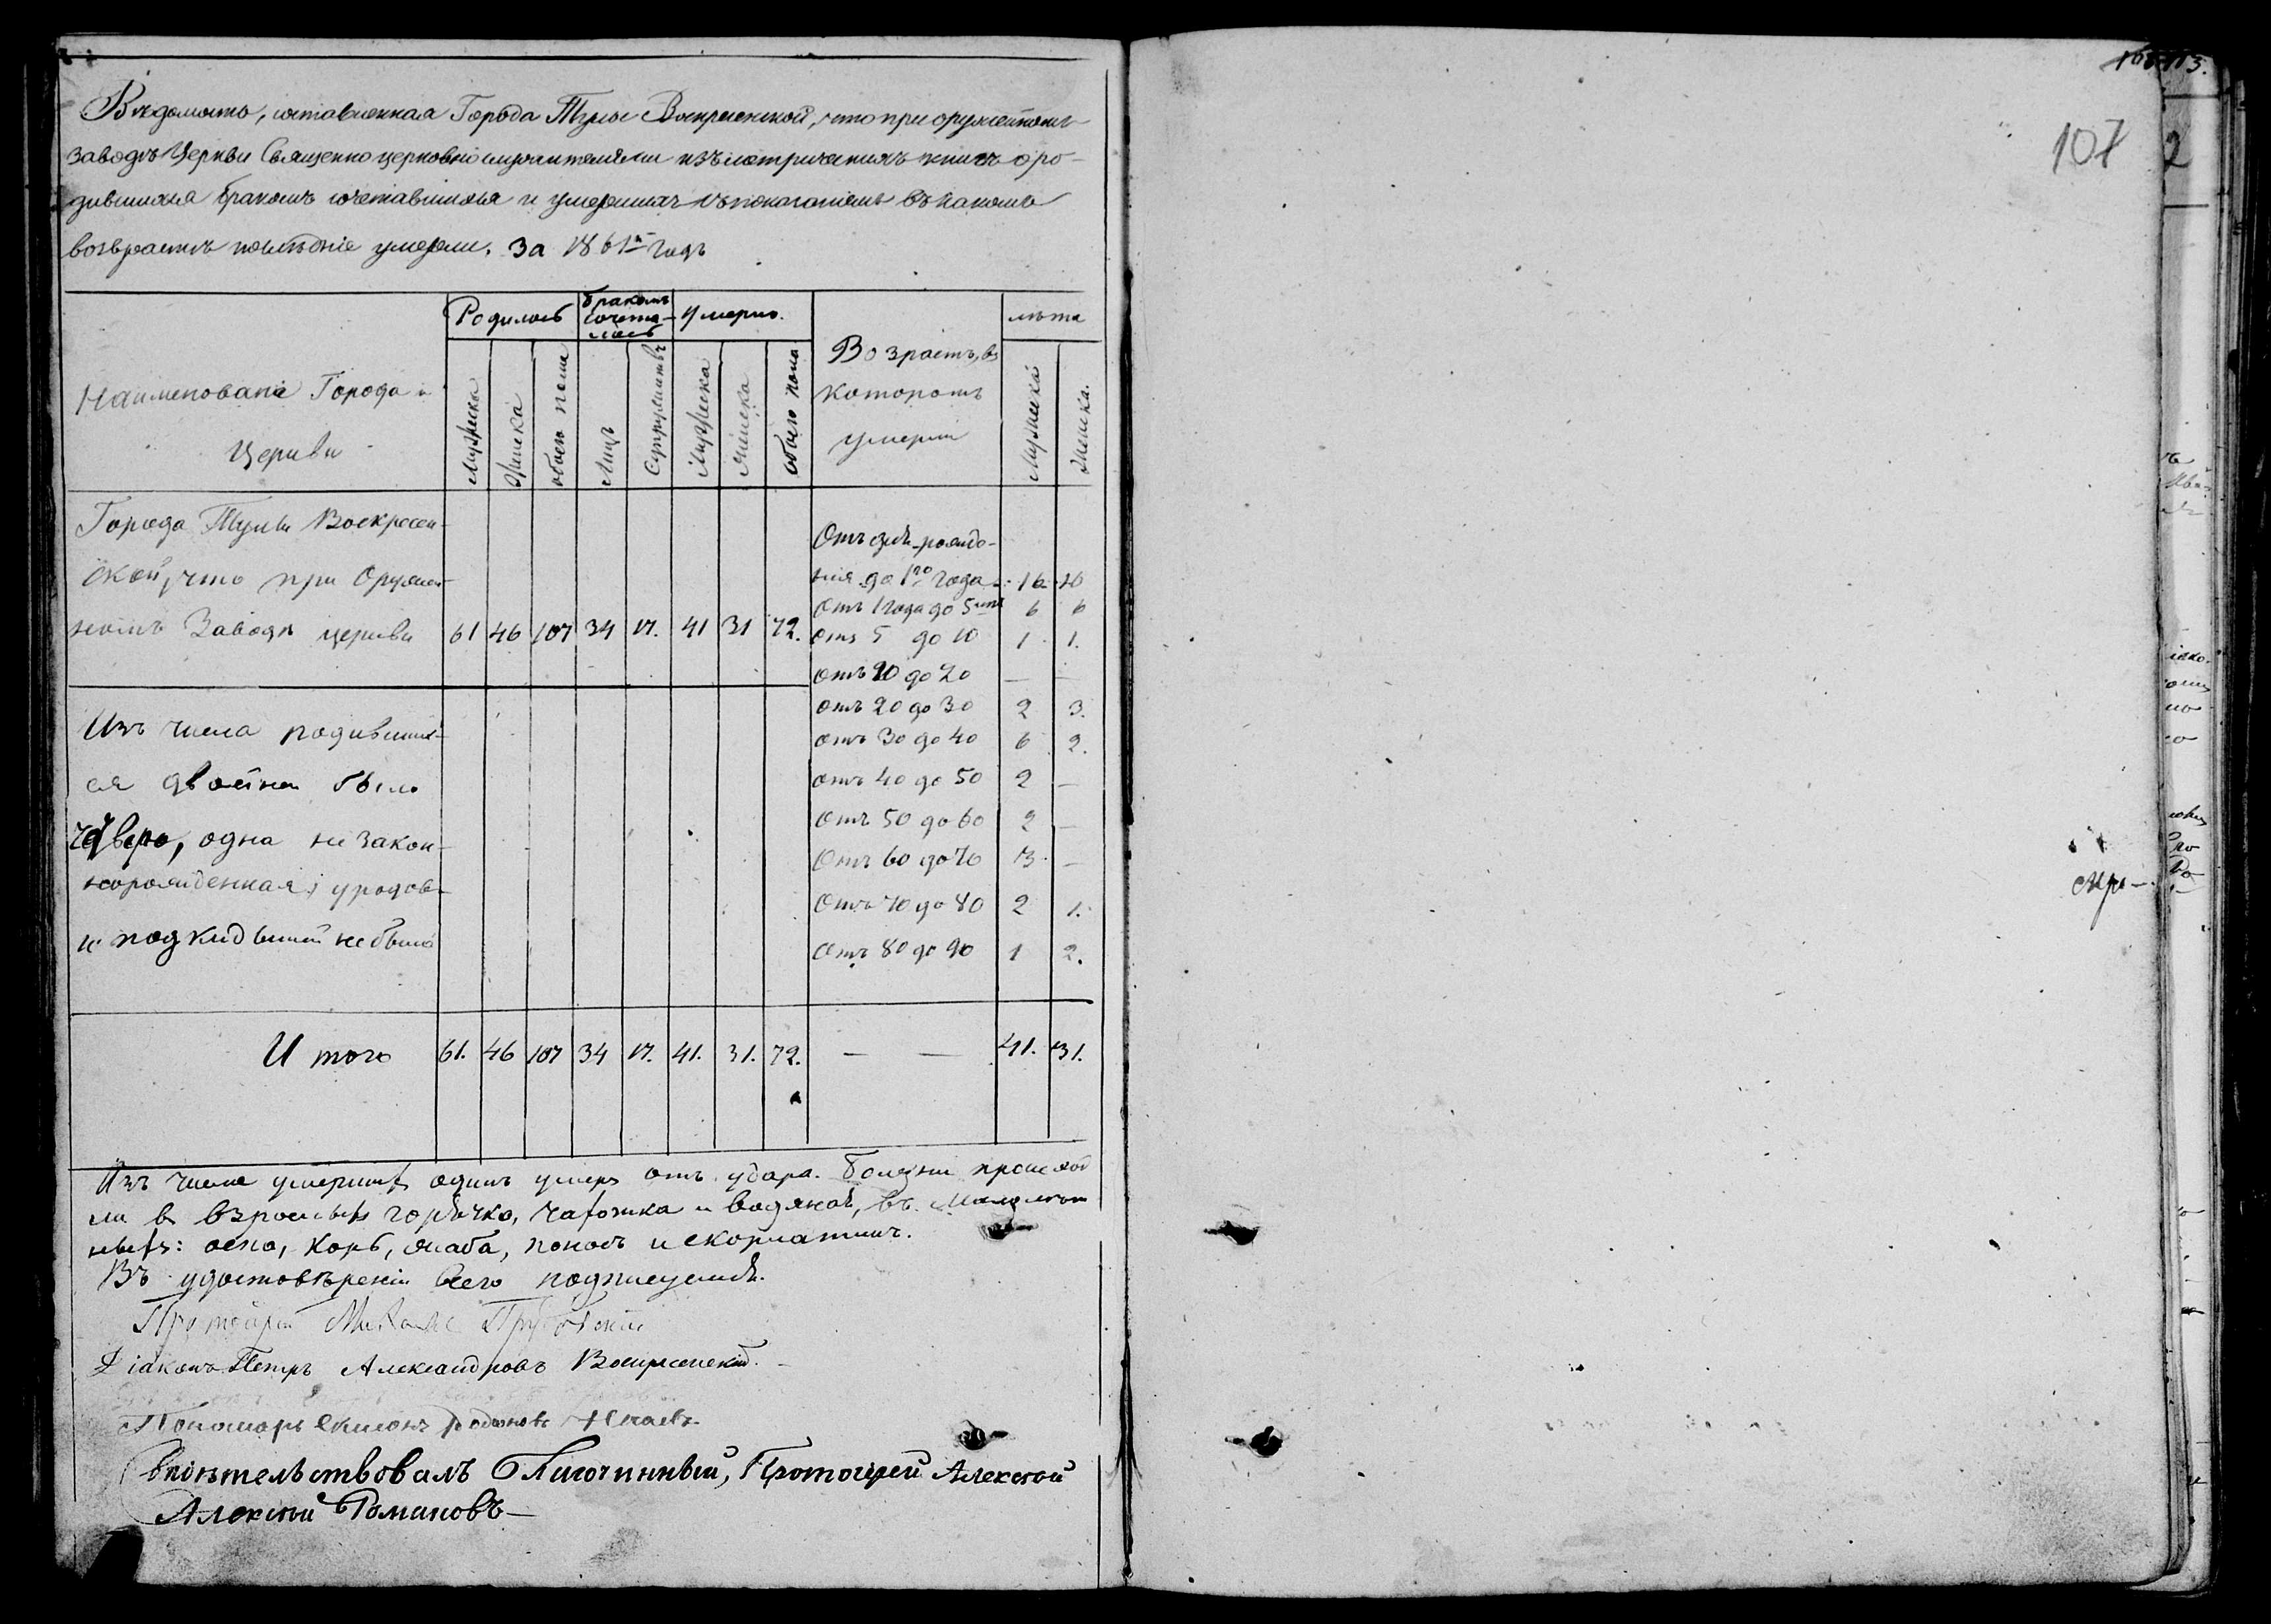 Вѣдомость, составленная Города Тулы Воскресенской, что при оружейномъ
заводѣ Церкви Священно церковно служителями изъ метрическихъ книгъ о ро-
дившихся бракомъ сочетавшихся и умершихъ съ показаніемъ въ какомъ
возрастѣ послѣдніе умерли. За 1861й годъ
Наименованіе Города и
Церкви
Родилось
бракомъ
сочета-
лось
Умерло.
Возрастъ, въ
которомъ
умерли
лѣта
Мужеска
Женска
обоего пола
Лицъ
Супружествъ
Мужеска
Женска
обоего пола
Мужеска
Женска.
Города Тулы Воскресен-
ской, что при Оружей-
номъ Заводѣ церкви 61 46 107 34 17. 41 31 72.
Отъ рожде-
нія до 1го года 16 16
Отъ 1 года до 5 6 6
Отъ 5 до 10 1 1.
Отъ 10 до 20 — —
Отъ 20 до 30 2 3.
Отъ 30 до 40 6 2.
Отъ 40 до 50 2 —
Отъ 50 до 60 2 —
Отъ 60 до 70 3 —
Отъ 70 до 80 2 1.
Отъ 80 до 90 1 2.
Изъ числа родивших-
ся двойни было
четверо, одна незакон-
норожденная; уродов-
и подкидышей не было
И того 61. 46 107 34 17. 41. 31. 72. — — 41. 31.
Изъ числа умершихъ одинъ умеръ отъ удара. Болезни происходи-
ли в взрослыхъ горячка, чахотка и водяная, въ малолѣт
ныхъ: оспа, корь, жаба, поносъ и скорлатина.
Въ удостовѣреніи сего подписуемся.
Протоіерей Михаилъ
Діаконъ Петръ Александровъ Воскресенскій.
Пономарь Родіоновъ Нечаевъ.
Свидѣтельствовалъ Благочинный, Протоіерей Алексѣй
Алексѣй Романовъ
113.
107
2